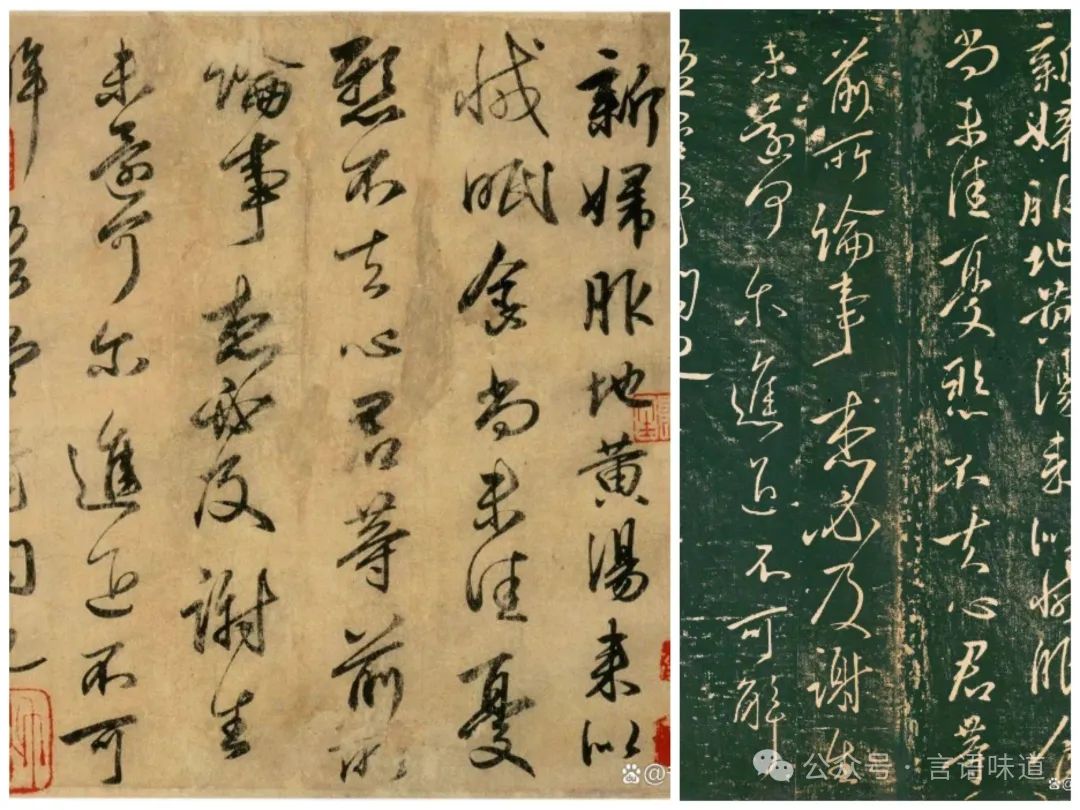 新婦服地黄湯来似
減眠食尚未佳憂
懸不去心君等前所
論事想必及謝生
未還可尔進退不可
解吾當書問也
新婦服地黄湯来似減眠食
尚未佳憂懸不去心君等
前所論事想必及謝生
未還可尔進退不可解
吾當書問也
公众号·言语味道